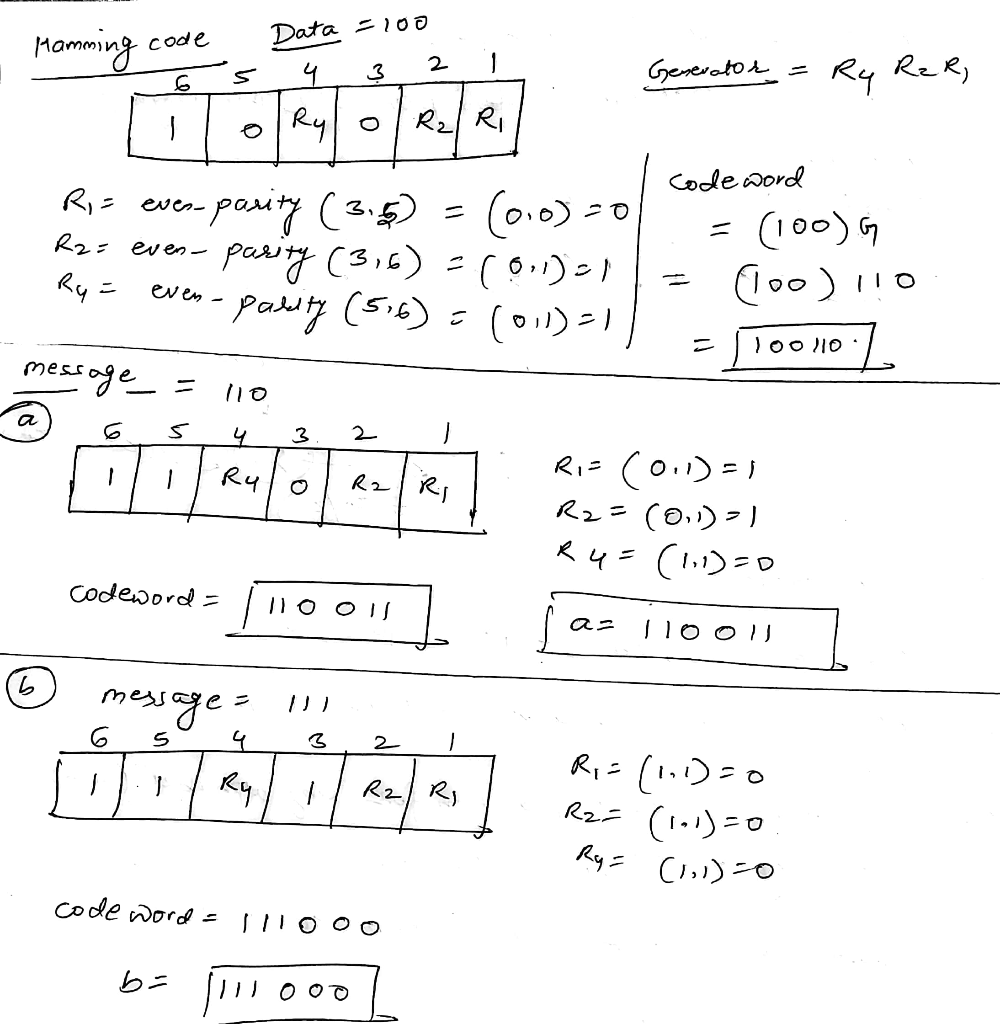 Hamming code Data = 100
6 5 4 3 2 1
1 0 R4 0 R2 R1
Generator = R4 R2 R1
R1 = even-parity (3,5) = (0,0) = 0
R2 = even- parity (3,6) = (0,1) = 1
R4 = even- parity (5,6) = (0,1) = 1
codeword
= (100) G
= (100) 110
= 100110.
message = 110
a
6 5 4 3 2 1
1 1 R4 0 R2 R1
R1 = (0,1) = 1
R2 = (0,1) = 1
R4 = (1,1) = 0
codeword = 110 011
a = 110011
b message = 111
6 5 4 3 2 1
1 1 R4 1 R2 R1
R1 = (1,1) = 0
R2 = (1,1) = 0
R4 = (1,1) = 0
codeword = 111000
b = 111 000